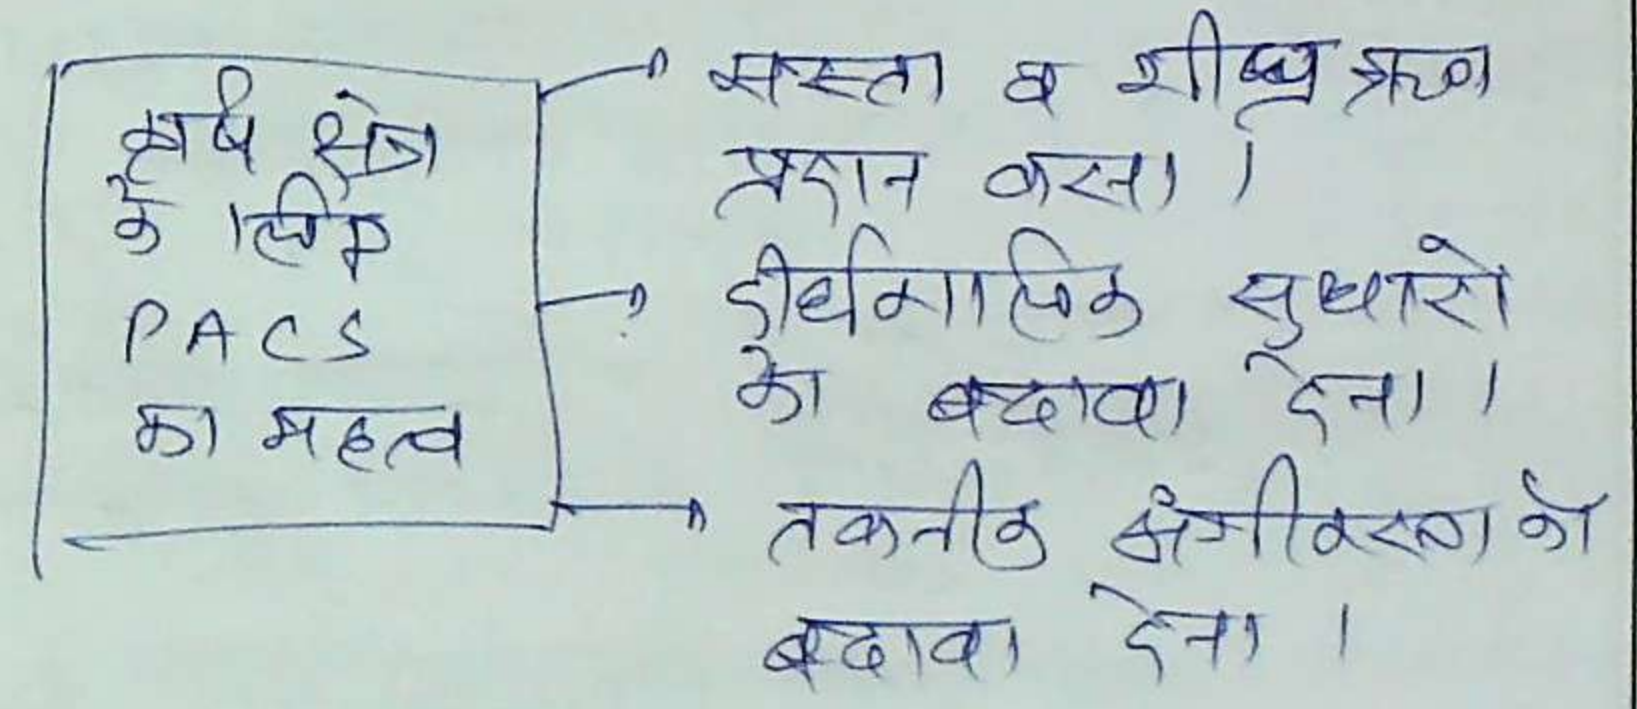 कृषि क्षेत्र
के लिए
PACS
का महत्व
सस्ता व शीघ्र ऋण
प्रदान करना।
दीर्घकालिक सुधारो
को बढावा देना।
तकनीक अंगीकरण को
बढावा देना।